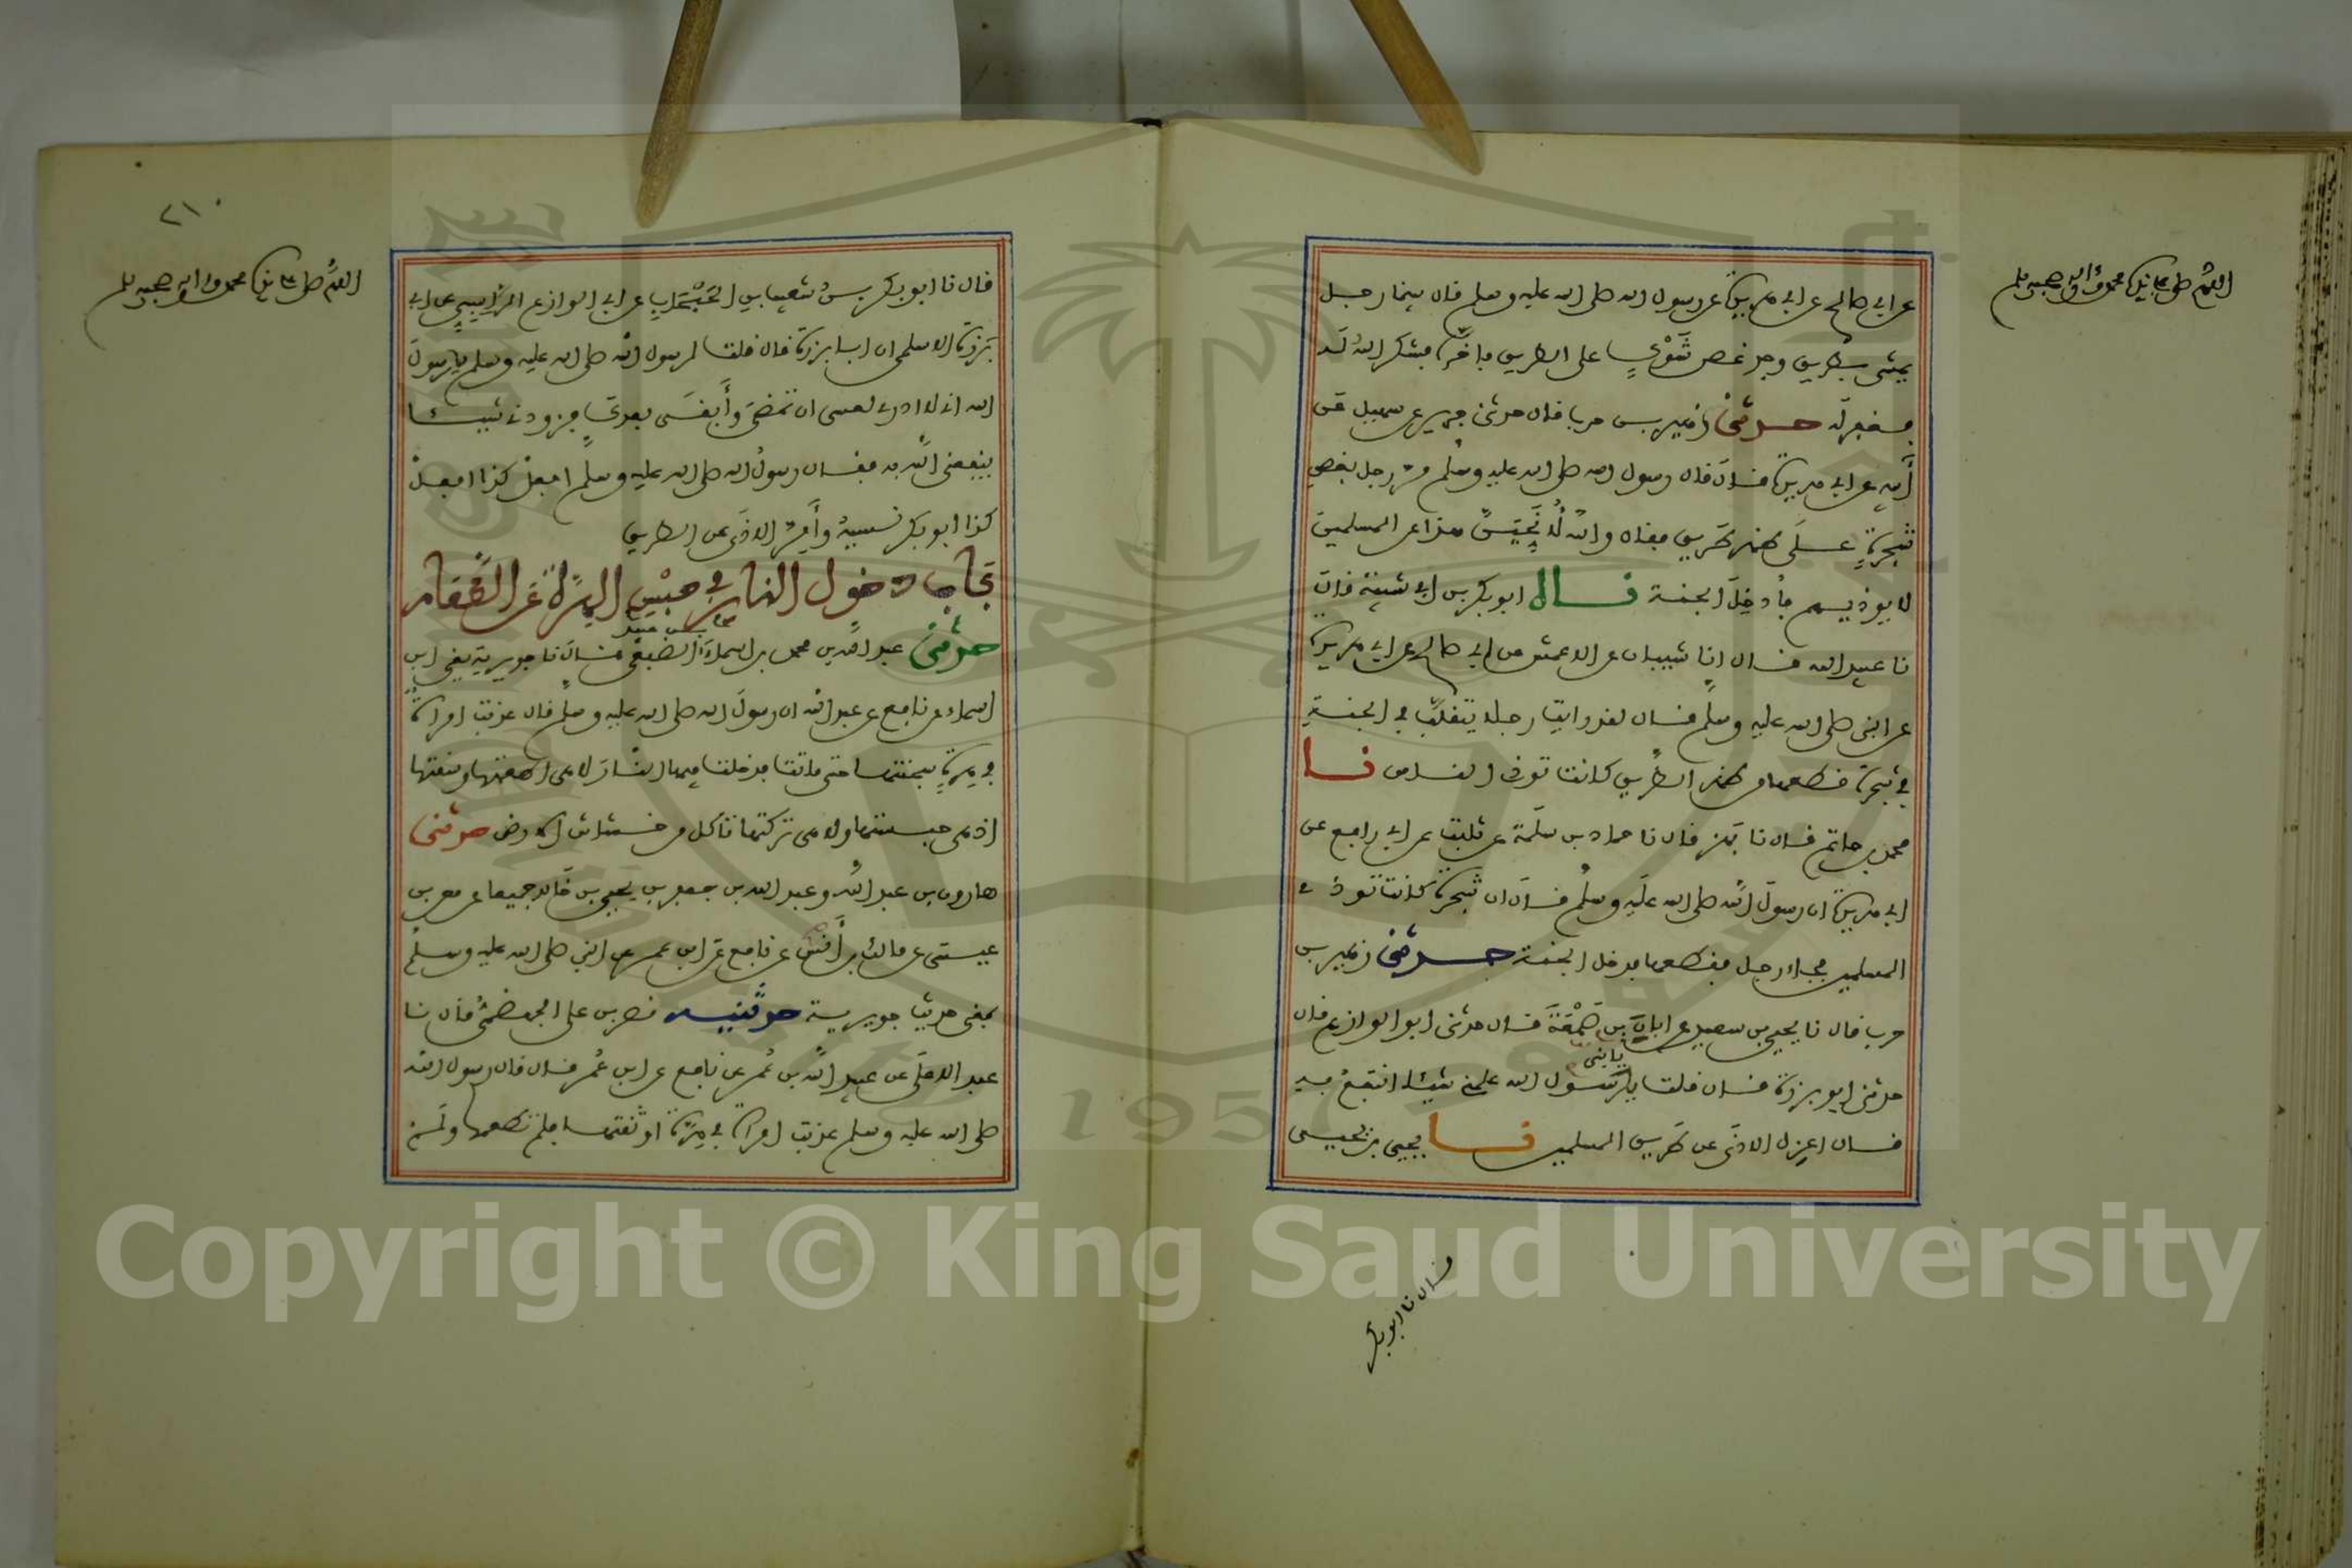 اللهم صل على نبيك محمد وآله وصحبه وسلم
عن ابي صالح عن ابي هريرة عن رسول الله صلى الله عليه وسلم قال بينما رجل
يمشي بطريق وجد غصن شوك على الطريق فاخره فشكر الله له
فغفر له حدثني زهير بن حرب قال حدثني جرير عن سهيل عن
أبيه عن ابي هريرة قال قال رسول الله صلى الله عليه وسلم مر رجل بغصن
شجرة على ظهر طريق فقال والله لأنحين هذا عن المسلمين
لا يوذيهم فأدخل الجنة قال ابو بكر بن ابي شيبة قال
نا عبيد الله قال انا شيبان عن الاعمش عن ابي صالح عن ابي هريرة
عن النبي صلى الله عليه وسلم قال لقد رايت رجلا يتقلب في الجنة
في شجرة قطعها من ظهر الطريق كانت توذي الناس نا
محمد بن حاتم قال نا بهز قال نا حماد بن سلمة عن ثابت عن ابي رافع عن
ابي هريرة ان رسول الله صلى الله عليه وسلم قال ان شجرة كانت توذي
المسلمين فجاء رجل فقطعها فدخل الجنة حدثني زهير بن
حرب قال نا يحيى بن سعيد عن ابان بن صمعة قال حدثني ابو الوازع قال
حدثني ابو برزة قال قلت يا رسول الله علمني شيئا انتفع به
يا نبي
قال اعزل الاذى عن طريق المسلمين نا يحيى بن يحيى
قال نا ابو بكر
٢١٠
اللهم صل على نبيك محمد وآله وصحبه وسلم
قال نا ابو بكر بن شعيب بن الحبحاب عن ابي الوازع الراسبي عن ابي
برزة الاسلمي ان ابا برزة قال قلت لرسول الله صلى الله عليه وسلم يا رسول
الله اني لا ادري لعسى ان تمضي وأبقى بعدك فزودني شيئا
ينفعني الله به فقال رسول الله صلى الله عليه وسلم افعل كذا افعل
كذا ابو بكر نسيه وأمر الاذى عن الطريق
باب دخول النار في حبس الهرة
حدثني عبد الله بن محمد بن اسماء الضبعي قال نا جويرية يعني ابن
اسماء عن نافع عن عبد الله ان رسول الله صلى الله عليه وسلم قال عذبت امراة
في هرة سجنتها حتى ماتت فدخلت فيها النار لا هي اطعمتها وسقتها
اذ هي حبستها ولا هي تركتها تاكل من خشاش الارض حدثني
هارون بن عبد الله وعبد الله بن جعفر بن يحيى بن خالد جميعا عن معن بن
عيسى عن مالك بن أنس عن نافع عن ابن عمر عن النبي صلى الله عليه وسلم
بمعنى حديث جويرية حدثنيه نصر بن علي الجهضمي قال نا
عبد الاعلى عن عبيد الله بن عمر عن نافع عن ابن عمر قال قال رسول الله
صلى الله عليه وسلم عذبت امراة في هرة اوثقتها فلم تطعمها ولم
1957
Copyright © King Saud University